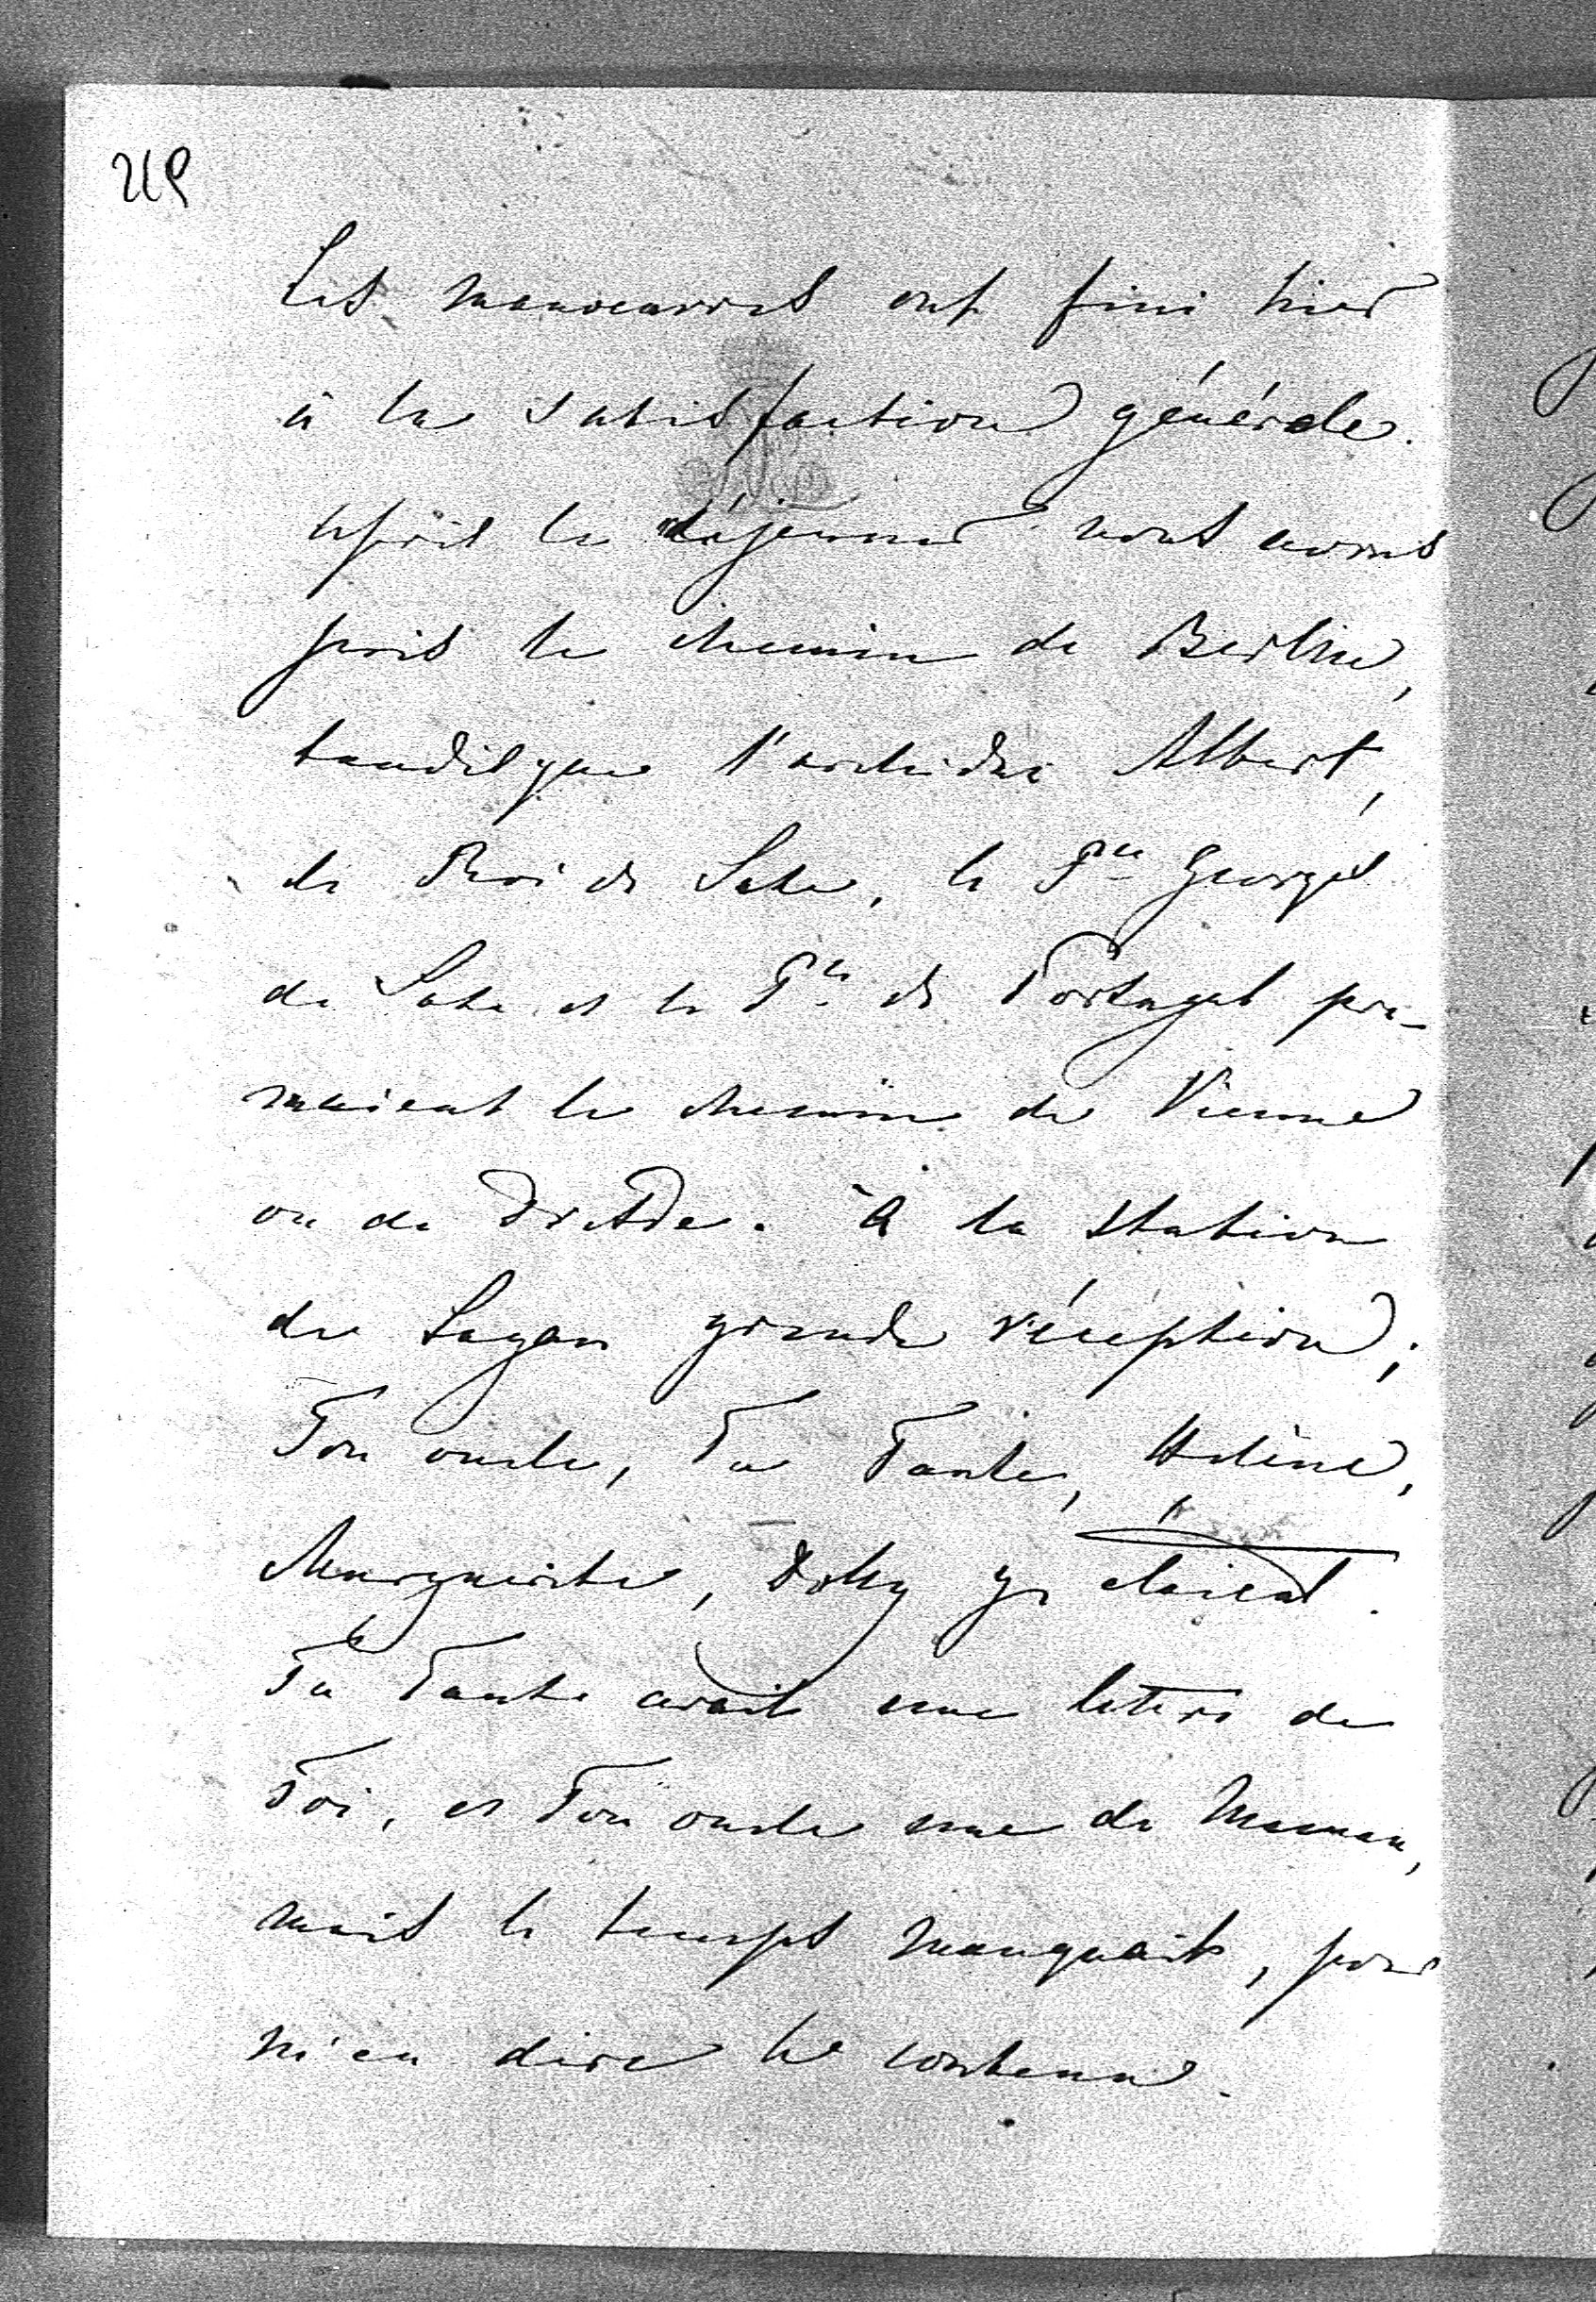 Les manoeuvres ont fini hier
à la satisfaction générale.
après le déjeuner nous avons
pris le chemin de Berlin,
tandisque l'archiduc Albert,
le Roi de Saxe, le Pce Georges
de Saxe et le Pce de Portugal pre-
naient le chemin de Vienne
ou de Dresde. À la station
de Sagan grande réception;
Ton oncle, Ta Tante, Hélène,
Marguerite, Dolly y étaient.
Ta Tante avait une lettre de
Toi, et Ton oncle une de Maman,
mais le temps manquait, pour
m'en dire le contenu.